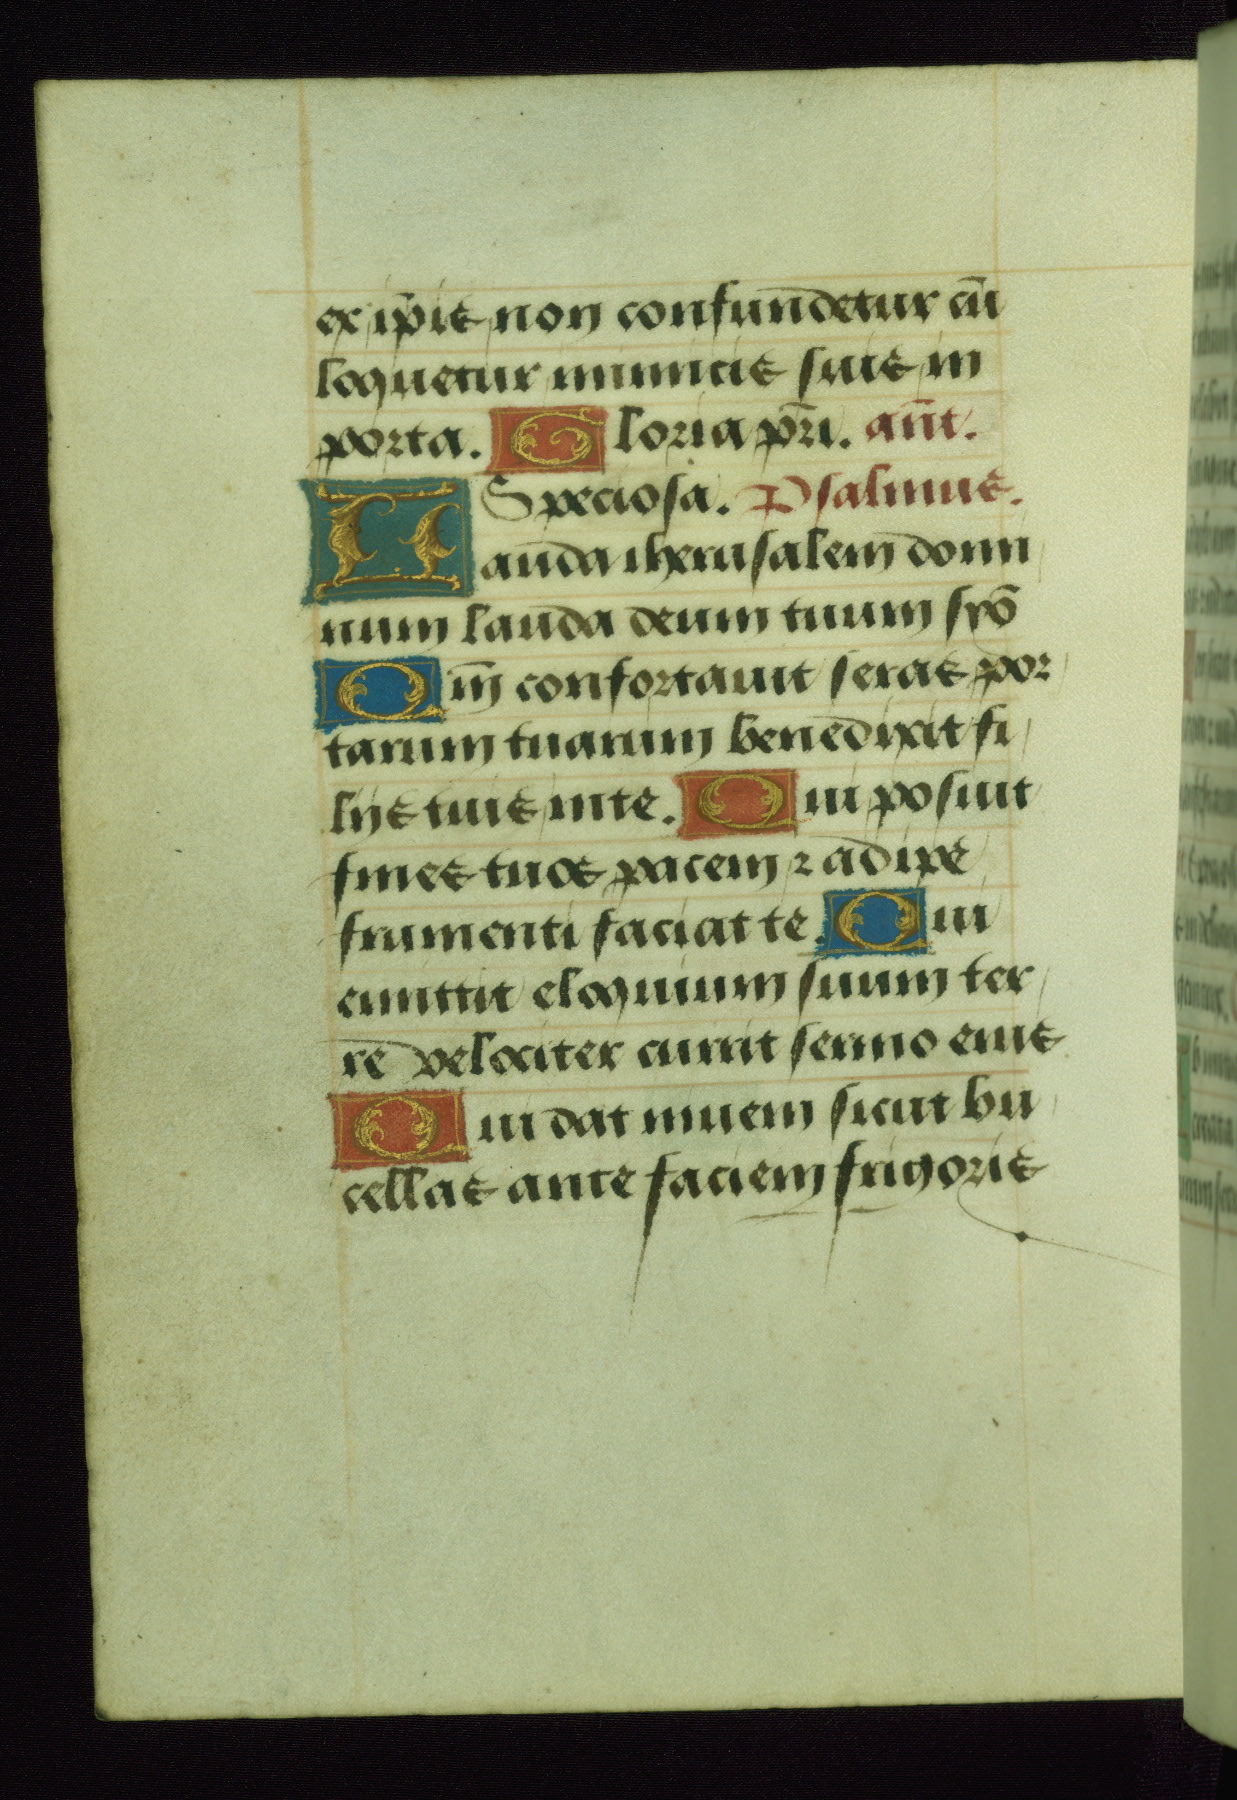 ex ip̄is non confundetur cū
loquetur inimicis suis in
porta. Gloria pr̄i. an̄t.
Speciosa. Psalmus.
Lauda iherusalem domi
num lauda deum tuum syō
Qm̄ confortauit seras por
tarum tuarum benedixit fi
lijs tuis in te. Qui posuit
fines tuos pacem ⁊ adipe
frumenti saciat te. Qui
emittit eloquium suum ter
re velociter currit sermo eius
Qui dat niuem sicut bu
cellas ante faciem frigoris